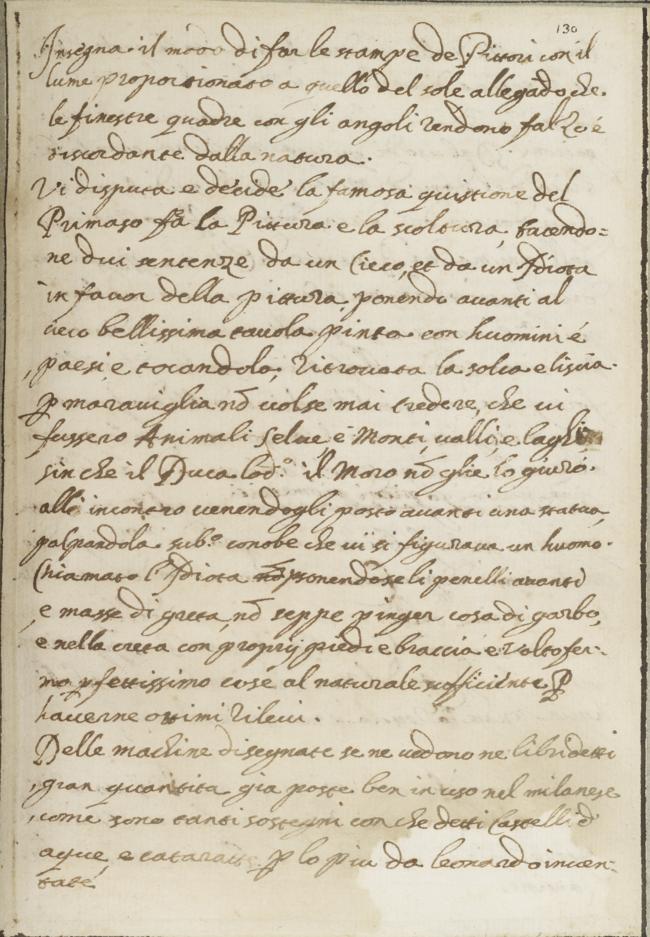 130
Insegna il modo di far le stampe de Pittori con il
lume proportionato a quello del sole allegado che
le finestre quadre con gli angoli rendono falzo é
discordante dalla natura.
Vi disputa e decide la famosa quistione del
Primato frà la Pittura e la scoltura, facendo=
ne dui sentenze da un Cieco, et da un Idiota
in favor della pittura ponendo avanti al
cieco bellissima tavola pinta con huomini é
paesi e tocandola, ritrovata la solca e liscia.
p̄ maraviglia nō volse mai credere, che vi
fussero Animali Selve é Monti, valli, e laghi
sin che il Duca Lod.º il Moro nō glie lo giurò.
all incontro venendogli posto avanti una statua,
palpandola sub.º conobe che vi si figurava un huomo.
Chiamato l'Idiota ponendoseli penelli avanti
e masse di greta, nō seppe pinger cosa di garbo,
e nella creta con proprij piedi e braccia e volto for-
mo pfettissimo cose al naturale sufficiente p̄
haverne ottimi rilevi.
Delle machine disegnate se ne vedono ne libri detti
gran quantita gia poste ben in uso nel milanese
come sono tanti sostegni con che detti Castelli d'
aque, e cataratte p̄ lo piu da leonardo inven-
tate